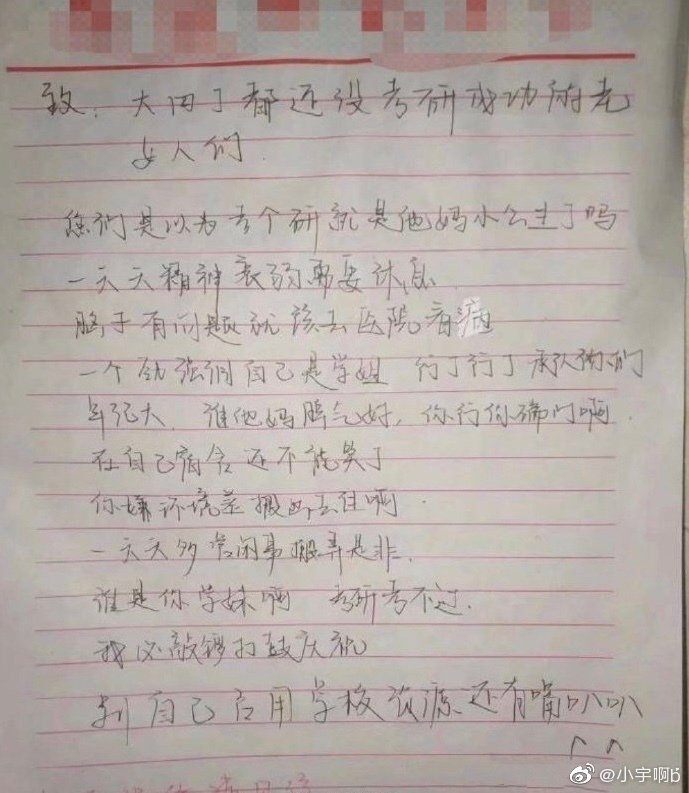 致：大四了都还没考研成功的老
女人们
您们是以为考个研就是他妈小公主了吗
一天天精神衰弱需要休息
脑子有问题就该去医院看病
一个劲强调自己是学姐 行了行了承认你们
年纪大，谁他妈脾气好，你行你踹门啊．
在自己宿舍还不能笑了
你嫌环境差搬出去住啊．
一天天多管闲事搬弄是非．
谁是你学妹啊 考研考不过．
我必敲锣打鼓庆祝
别自己占用学校资源还有嘴叭叭
^ ^
@小宇啊